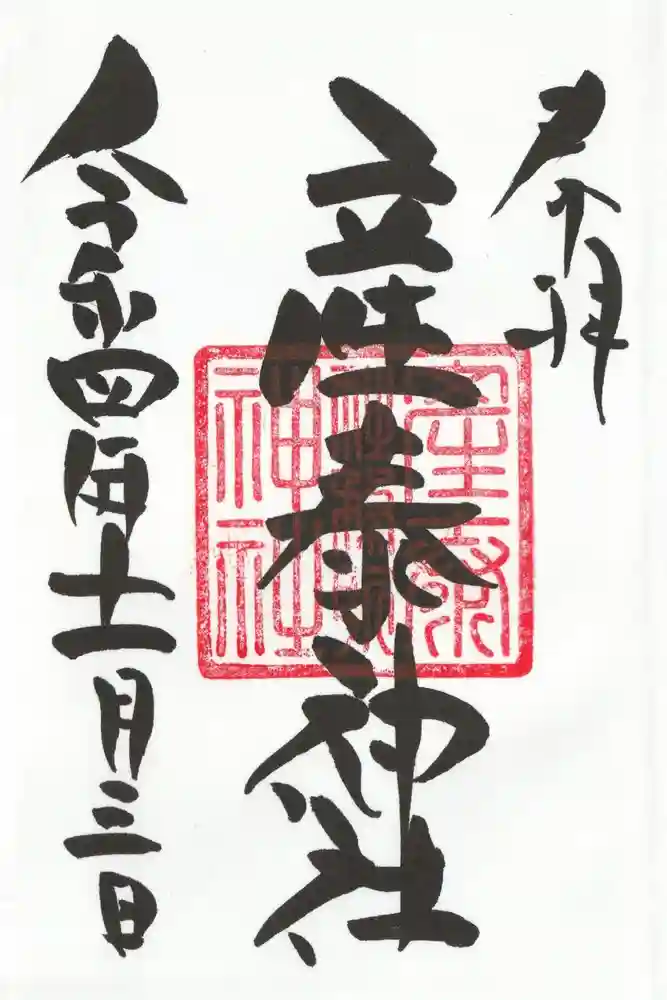 奉拝
産泰神社
令和四年十一月三日
産泰
神社